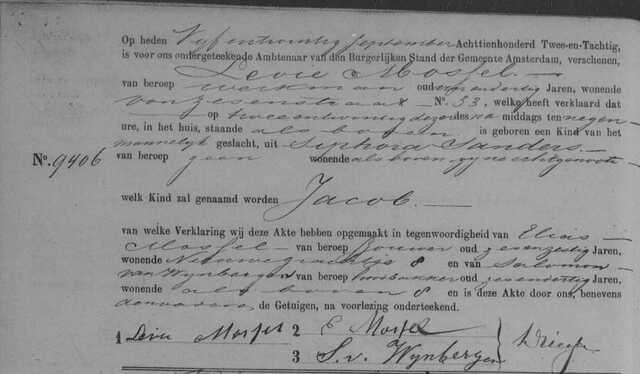 Op heden Vyf en twintig September Achttienhonderd Twee-en-Tachtig,
is voor ons ondergeteekende Ambtenaar van den Burgerlijken Stand der Gemeente Amsterdam, verschenen,
Levie Mossel
van beroep werkman oud en dertig Jaren, wonende
No. 53, welke heeft verklaard dat
op twee en twintig dezer des na middags ten negen
ure, in het huis, staande als boven is geboren een Kind van het
mannelyk geslacht, uit Siphora Sanders
No. 9406 van beroep geen wonende als boven, zyne echtgenoote
welk Kind zal genaamd worden Jacob
van welke Verklaring wij deze Akte hebben opgemaakt in tegenwoordigheid van Elias
Mossel van beroep oud zes en zestig Jaren,
wonende 8 en van Salomon
van Wynbergen van beroep oud zes en dertig Jaren,
wonende als boven 8 en is deze Akte door ons, benevens
de Getuigen, na voorlezing onderteekend.
1 Levie Mossel 2 E Mossel
3 S. v. Wynbergen